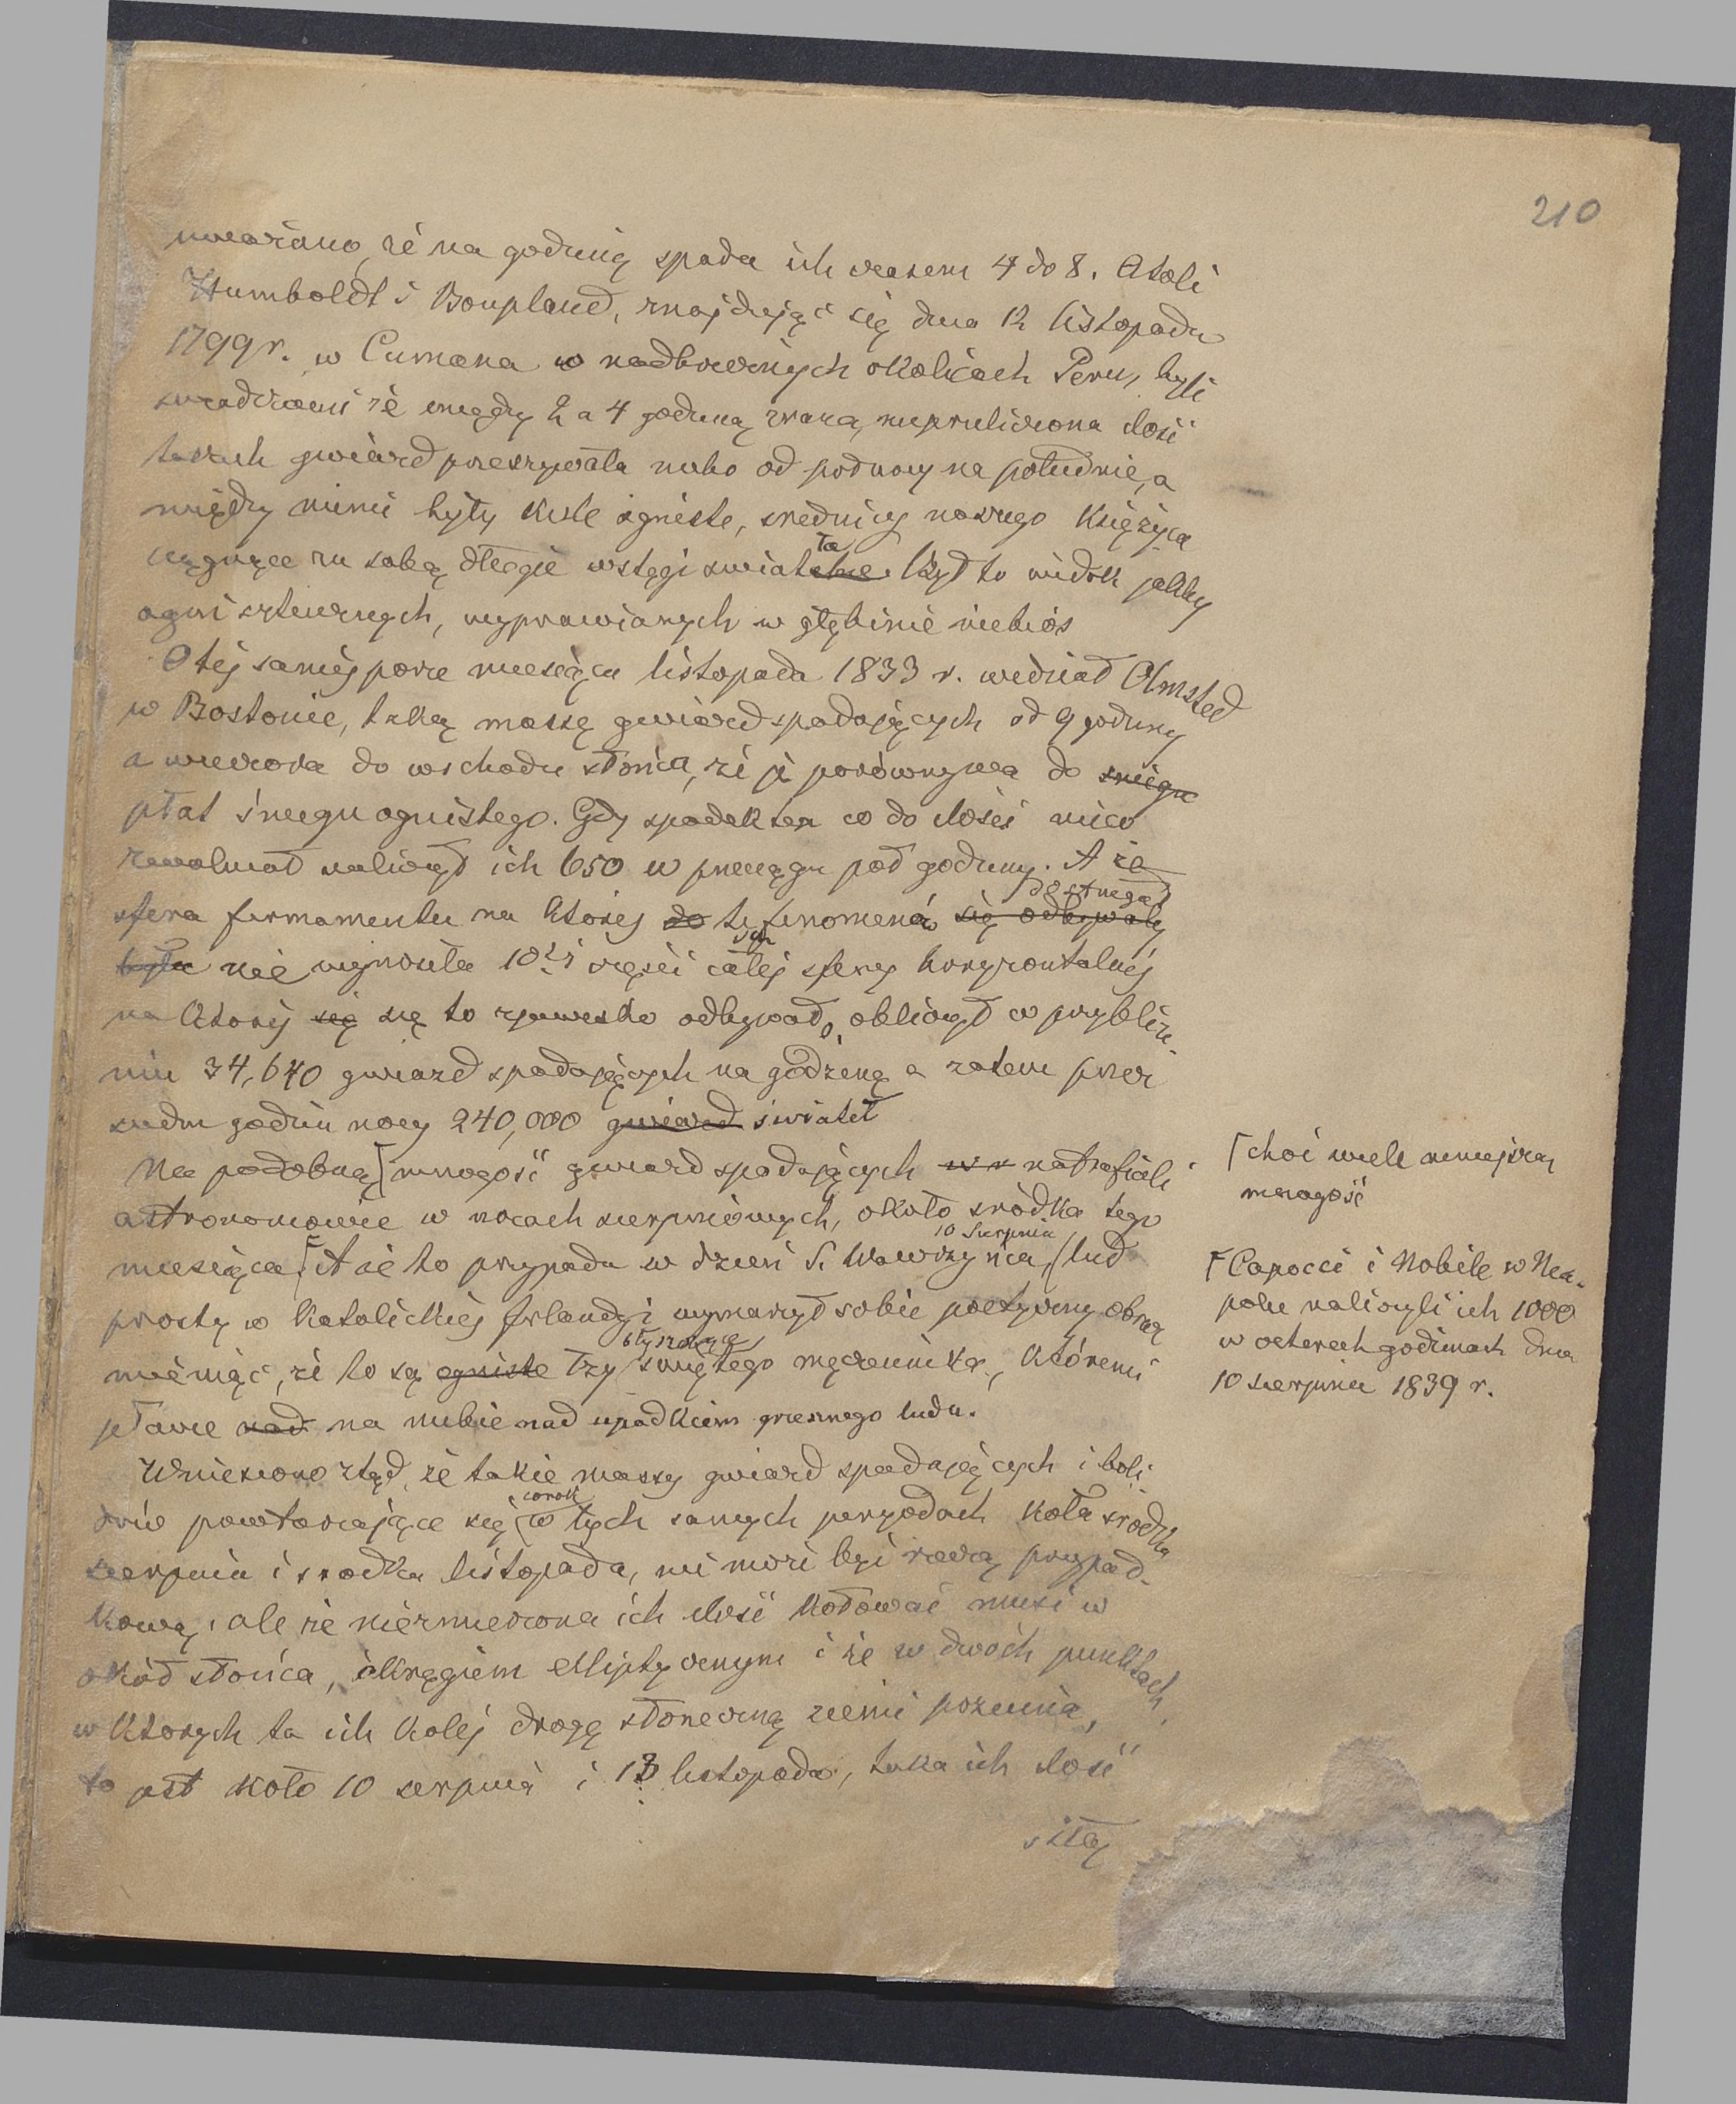 210
uważano, że na godzinę spada ich czasem 4 do 8. Atoli
Humboldt i Bonpland, znajdując się dnia 12 listopada
1799 r. w Cumana w nadbrzeżnych okolicach Peru, byli
świadkami że między 2 a 4 godziną zrana, nieprzeliczona ilość
takich gwiazd przeszywała niebo od północy na południe, a
między nimi były kule ogniste, średnicy naszego Księżyca
ciągnące za sobą długie wstęgi światła. Był to widok jakby
ogni sztucznych, wyprawianych w głębinie niebios
O tej samej porze miesiąca listopada 1833 r. widział Olmsted
w Bostonie, taką massę gwiazd spadających od 9 godziny
a wieczora do wschodu słońca, że je porównywa do śniegu
płat śniegu ognistego. Gdy spadek ten co do ilości nieco
zwolniał naliczył ich 650 w przeciągu pół godziny. A że
dostrzegał
sfera firmamentu na której do te fenomena się odbywały
była nie wynosiła 10tej części całej sfery horyzontalnej
na której się się to zjawisko odbywało, obliczył w przybliże-
niu 34,640 gwiazd spadających na godzinę a zatem przez
siedm godzin nocy 240,000 gwiazd świateł
Na podobną mnogość gwiazd spadających natrafiali
[choć wiele mniejszą
mnogość
astronomowie w nocach sierpniowych, około środka tego
10 Sierpnia
miesiąca. [A że to przypada w dzień S. Wawrzyńca, lud
[Capocci i Nobile w Nea-
polu naliczyli ich 1000
w czterech godzinach dnia
10 sierpnia 1839 r.
prosty w Katolickiej Irlandyi wymarzył sobie poetyczny obraz
błyszczące
mieniąc, że to są ogniste łzy świętego męczennika, któremi
płacze nad na niebie nad upadkiem grzesznego ludu.
Wniesiono ztąd, że takie massy gwiazd spadających i boli-
corok
dów powtarzające się w tych samych peryodach koło środka
sierpnia i środka listopada, nie może być rzeczą przypad-
kową, ale że niezmierzona ich ilość kołować musi w
okół słońca, okręgiem elliptycznym i że w dwóch punktach,
w których ta ich kolej drogę słoneczną ziemi przecina,
to jest koło 10 sierpnia i 13 listopada, taka ich ilość